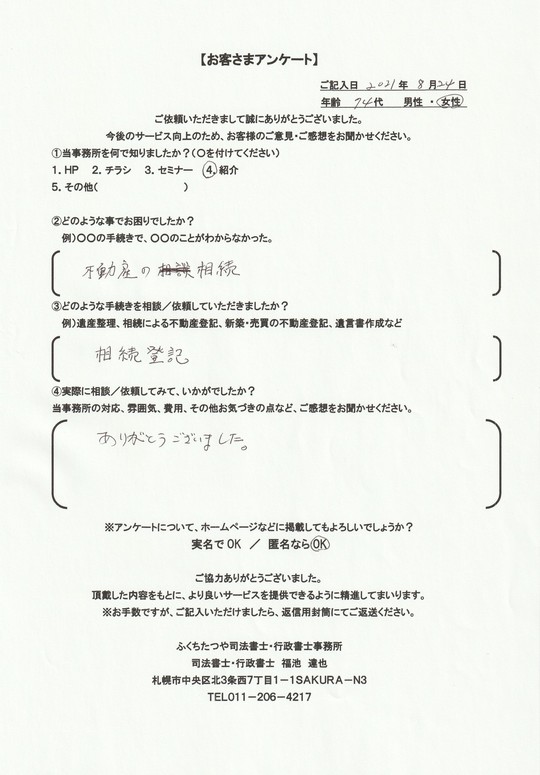 【お客さまアンケート】
ご記入日 2021年 8月24日
年齢 74代 男性 ・ 女性
ご依頼いただきまして誠にありがとうございました。
今後のサービス向上のため、お客様のご意見・ご感想をお聞かせください。
①当事務所を何で知りましたか？(〇を付けてください)
1. HP 2. チラシ 3. セミナー 4. 紹介
5. その他( )
②どのような事でお困りでしたか？
例)〇〇の手続きで、〇〇のことがわからなかった。
不動産の 相談 相続
③どのような手続きを相談／依頼していただきましたか？
例)遺産整理、相続による不動産登記、新築・売買の不動産登記、遺言書作成など
相続登記
④実際に相談／依頼してみて、いかがでしたか？
当事務所の対応、雰囲気、費用、その他お気づきの点など、ご感想をお聞かせください。
ありがとうございました。
※アンケートについて、ホームページなどに掲載してもよろしいでしょうか？
実名でOK ／ 匿名ならOK
ご協力ありがとうございました。
頂戴した内容をもとに、より良いサービスを提供できるように精進してまいります。
※お手数ですが、ご記入いただけましたら、返信用封筒にてご返送ください。
ふくちたつや司法書士・行政書士事務所
司法書士・行政書士 福池 達也
札幌市中央区北3条西7丁目1－1SAKURA－N3
TEL011－206－4217